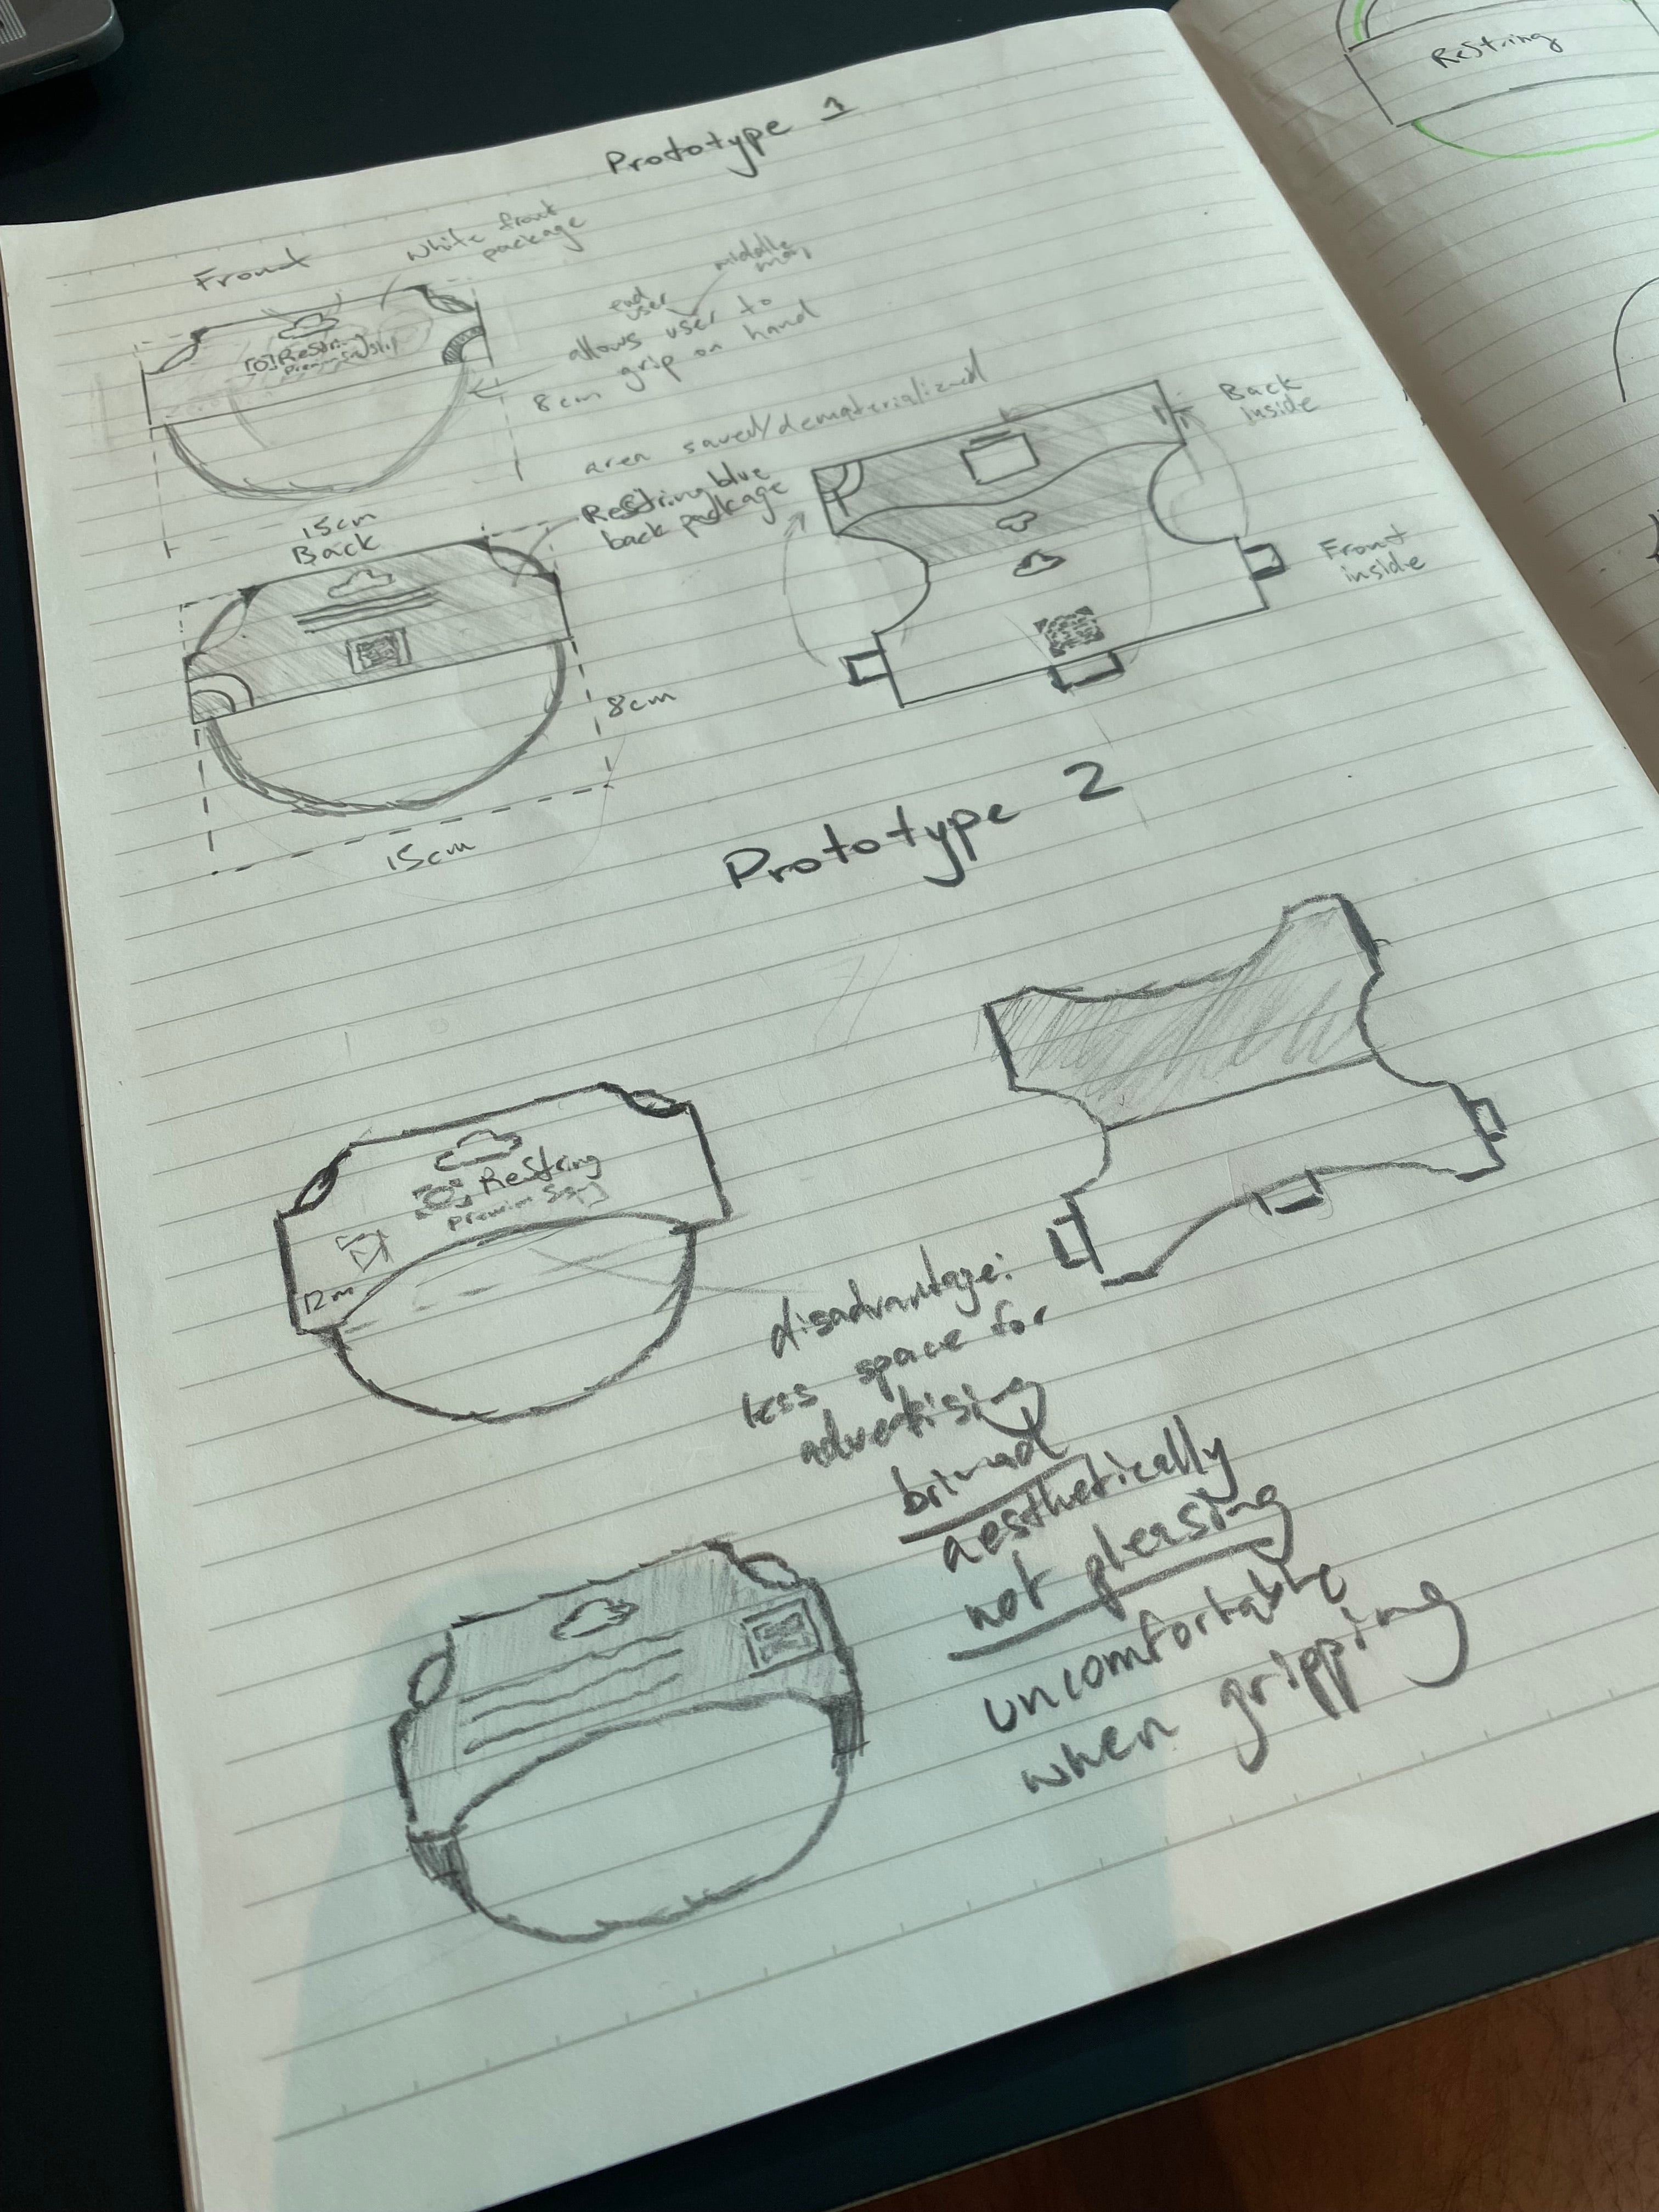 Restring
Prototype 1
Front
White front
package
middle
man
end
user
allows user to
grip on hand
8cm
area saved/dematerialized
Back
inside
15cm
Back
Restring blue
back package
Front
inside
8cm
15cm
Prototype 2
Restring
Premium
12m
disadvantage:
less space for
advertising
aesthetically
not pleasing
uncomfortable
when gripping